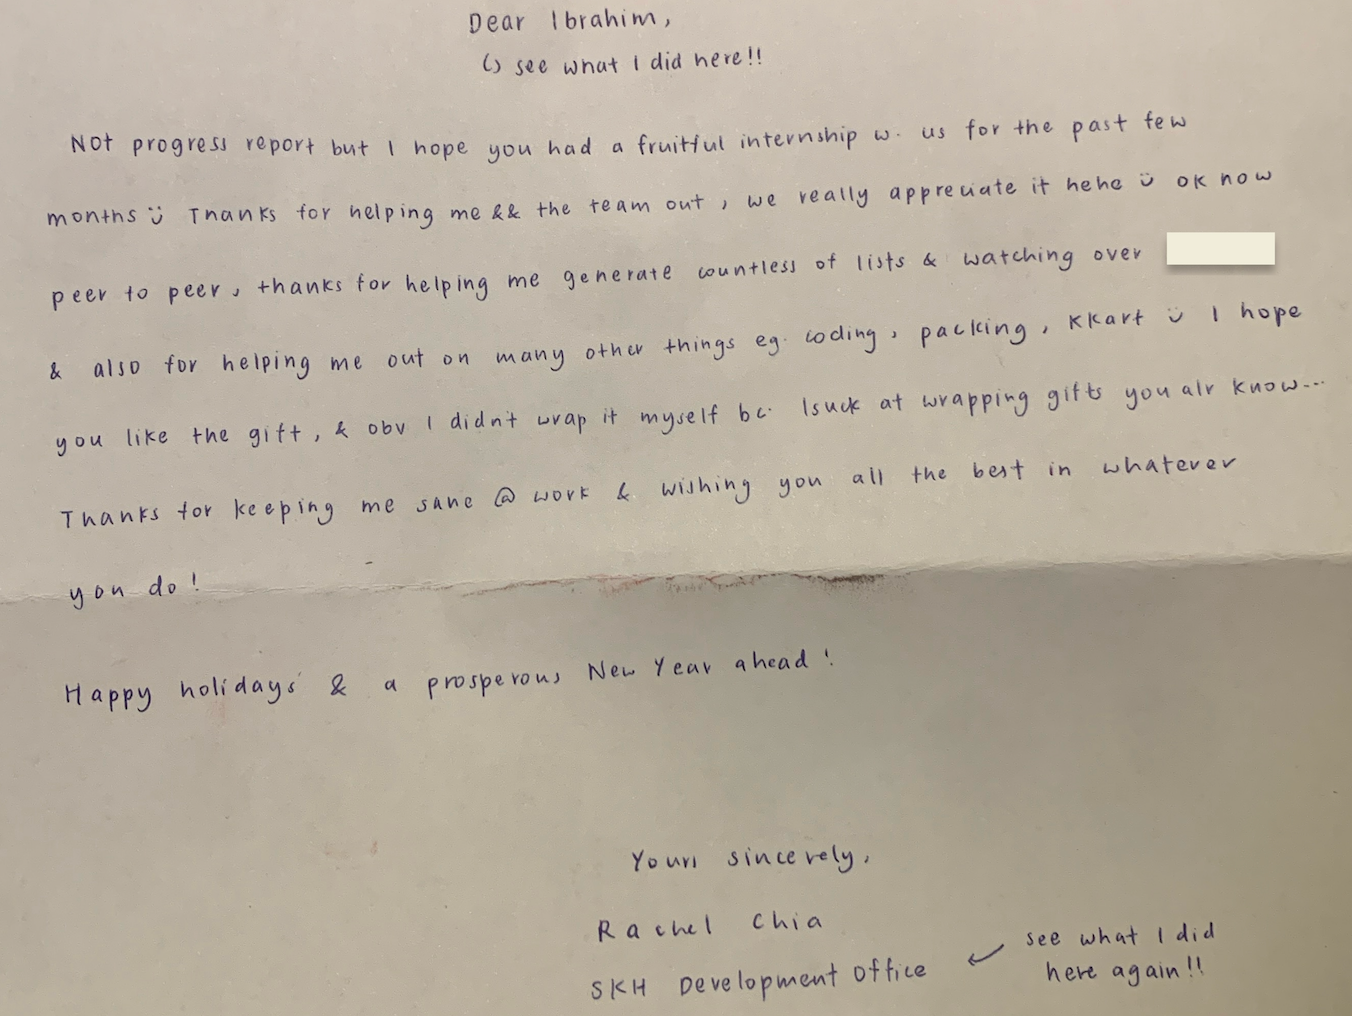 Dear Ibrahim,
↳ see what I did here!!
Not progress report but I hope you had a fruitful internship w. us for the past few
months :) Thanks for helping me && the team out, we really appreciate it hehe :) ok now
peer to peer, thanks for helping me generate countless of lists & watching over
& also for helping me out on many other things eg. coding, packing, KKart :) I hope
you like the gift, & obv I didn't wrap it myself bc. I suck at wrapping gifts you alr know...
Thanks for keeping me sane @ work & wishing you all the best in whatever
you do!
Happy holidays & a prosperous New Year ahead!
Yours sincerely,
Rachel Chia
SKH Development Office
← see what I did
here again!!